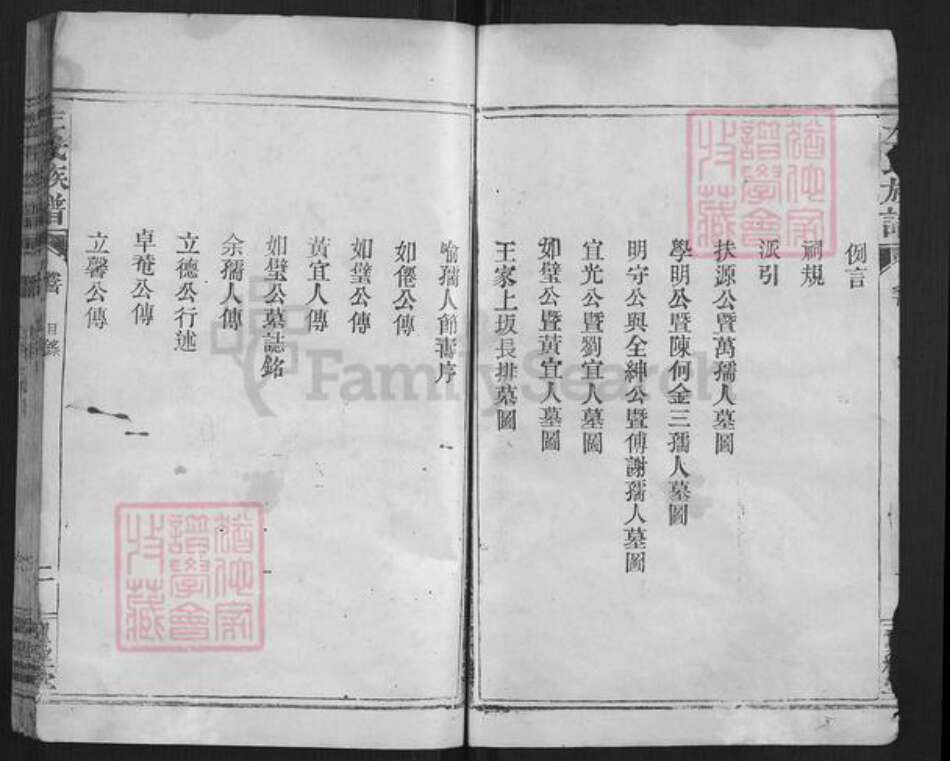 例言
祠規
派引
扶源公暨萬孺人墓圖
學明公暨陳何金三孺人墓圖
明守公與全紳公暨傅謝孺人墓圖
宜光公暨劉宜人墓圖
如璧公暨黃宜人墓圖
王家上坂長排墓圖
喻孺人節壽序
如僊公傳
如璧公傳
黃宜人傳
如璧公墓誌銘
余孺人傳
立德公行述
卓菴公傳
立馨公傳
氏族譜
目錄
二
猶他家
譜學會
收藏
猶他家
譜學會
收藏
FamilySearch